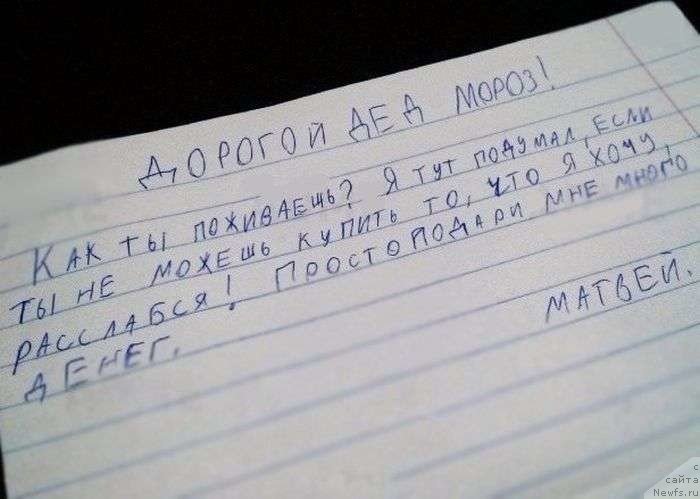 ДОРОГОЙ ДЕД МОРОЗ!
КАК ТЫ ПОЖИВАЕШЬ? Я ТУТ ПОДУМАЛ, ЕСЛИ
ТЫ НЕ МОЖЕШЬ КУПИТЬ ТО, ЧТО Я ХОЧУ,
РАССЛАБСЯ! ПРОСТО ПОДАРИ МНЕ МНОГО
ДЕНЕГ.
МАТВЕЙ.
с
сайта
Newfs.ru